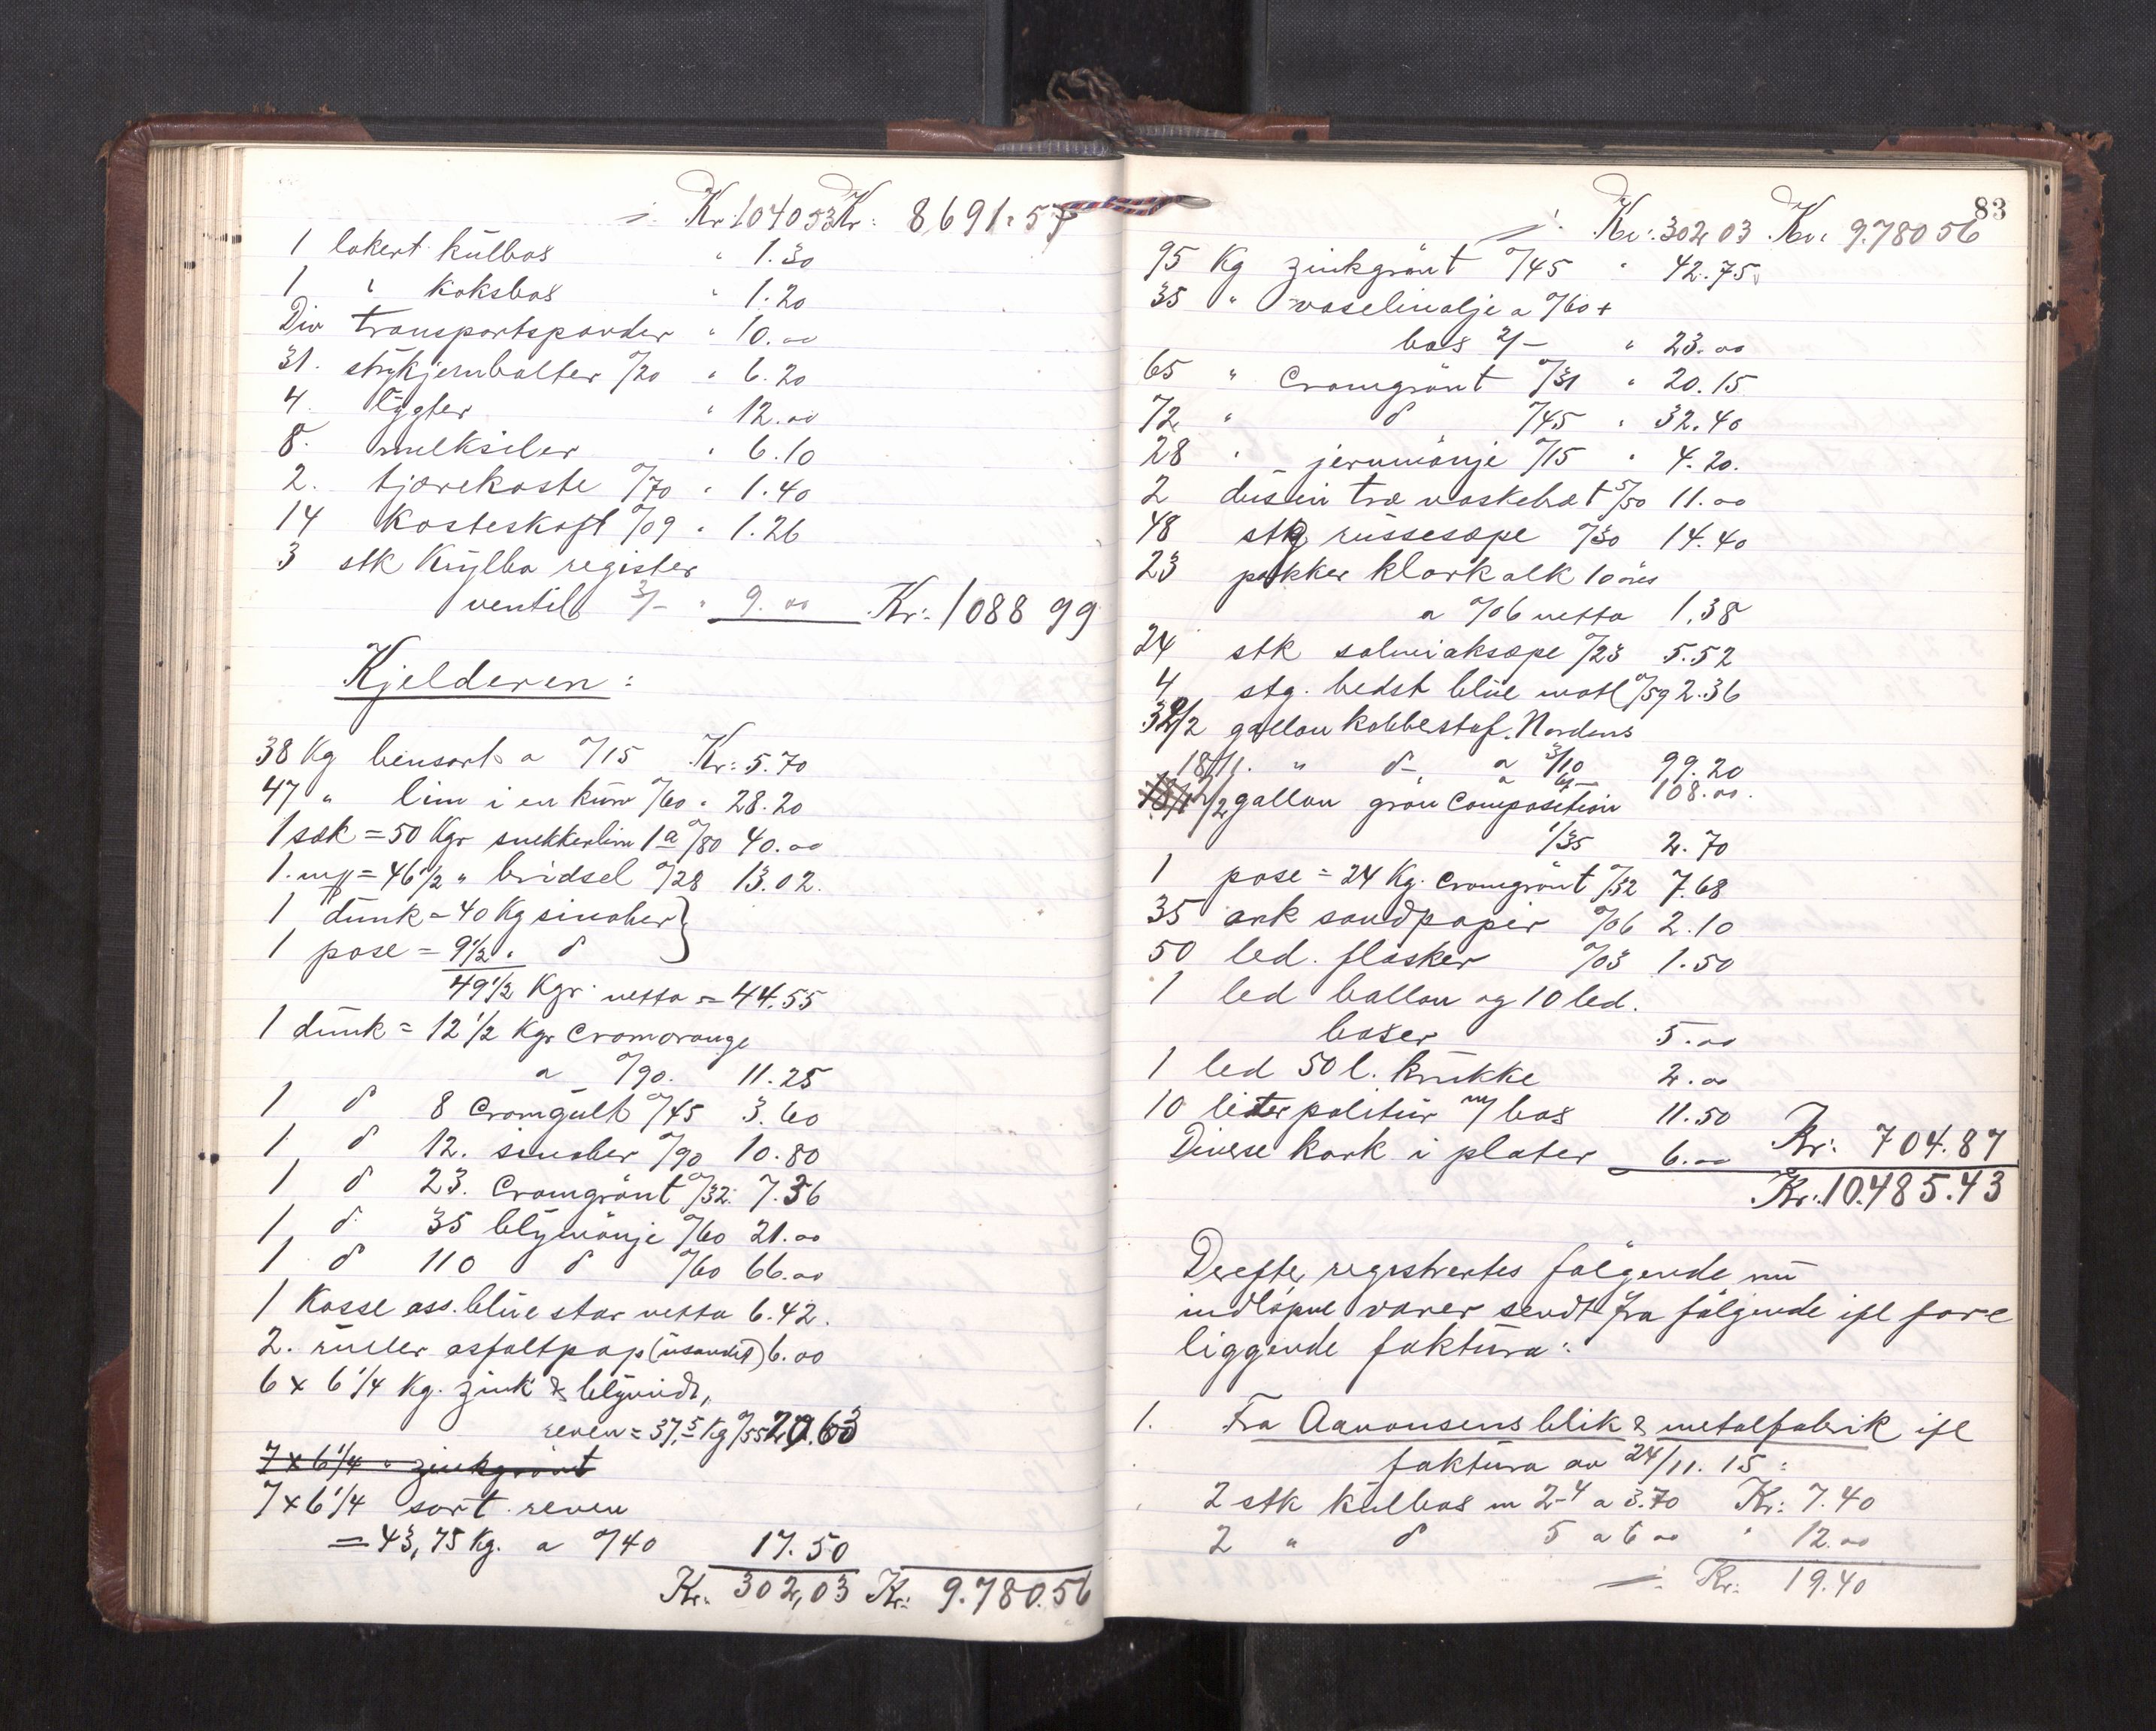 Kr. 1040 53 Kr: 8691.57
1 lakert külbas " 1.30
1 " koksbas " 1.20
Div transportspander " 10.00
31. strykjernbolter %20 " 6.20
4. lygter " 12.00
8. melksiler " 6.10
2. tjærekoste %70 " 1.40
14 Kosteskaft %09 " 1.26
3 stk register
ventil 3/- " 9.00 Kr: 1088 99
Kjelderen:
38 Kg bensort a %15 Kr: 5.70
47 " lim i en kürv %60 " 28.20
1 sæk = 50 Kgr snekkerlim 1a %80 40.00
1. = 46 1/2 " bridsel %28 13.02.
1 dünk = 40 Kg sinober }
1 pose = 9 1/2 " d
49 1/2 Kgr netto = 44.55
1 dünk = 12 1/2 Kgr Cromorange
a %90. 11.25
1 d 8 Cromgült %45 3.60
1 d 12. sinober %90 10.80
1 d 23. Cromgrönt %32. 7.36
1 d 35 blymönje %60 21.00
1 d 110 d %60 66.00
1 Kasse ass. blüe star netto 6.42.
2. rüller asfaltpap (üsandet) 6.00
6 x 6 1/4 Kg. zink & blyhvidt,
reven = 37,5 Kg %55 20.63
7 x 6 1/4 " zinkgrönt
7 x 6 1/4 sort reven
= 43,75 Kg. a %40 17.50
Kr. 302,03 Kr: 9.780.56
83
Kr: 302 03 Kr: 9.780 56
95 Kg zinkgrönt %45 " 42.75
35 " vaselinolje a %60 +
bas 2/- " 23.00
65 " Cromgrönt %31 " 20.15
72 " d %45 " 32.40
28 " jernmönje %15 " 4.20.
2 düsin træ vaskebræt 5/50 11.00
48 stg rüssesæpe %30 14.40
23 pakker klorkalk 10 öres
a %06 netto 1.38
24 stk salmiaksæpe %23 5.52
4 stg. bedst blüe matl %59 2.36
32/2 gallon kobberstof. Nordens
18/1. " d a 3/10 99.20
1/2 gallon grön Composition 108.00.
1/35 2.70
1 pose = 24 Kg. Cromgrönt %32 7.68
35 ark sandpapir %06 2.10
50 led. flasker %03 1.50
1 led ballon og 10 led.
baser 5.00
1 led 50 l. krükke 2.00
10 liter politür m/ bas 11.50 Kr: 704.87
Diverse kork i plater 6.00
Kr: 10.485.43
Derefter registrertes følgende nü
indløpne varer sendt fra følgende ifl fore
liggende faktüra:
1. Fra Aanonsens blik & metalfabrik ifl
faktüra av 24/11. 15:
2 stk külbas m 2-4 a 3.70 Kr: 7.40
2 " d 5 a 6 00 " 12.00
Kr: 19.40